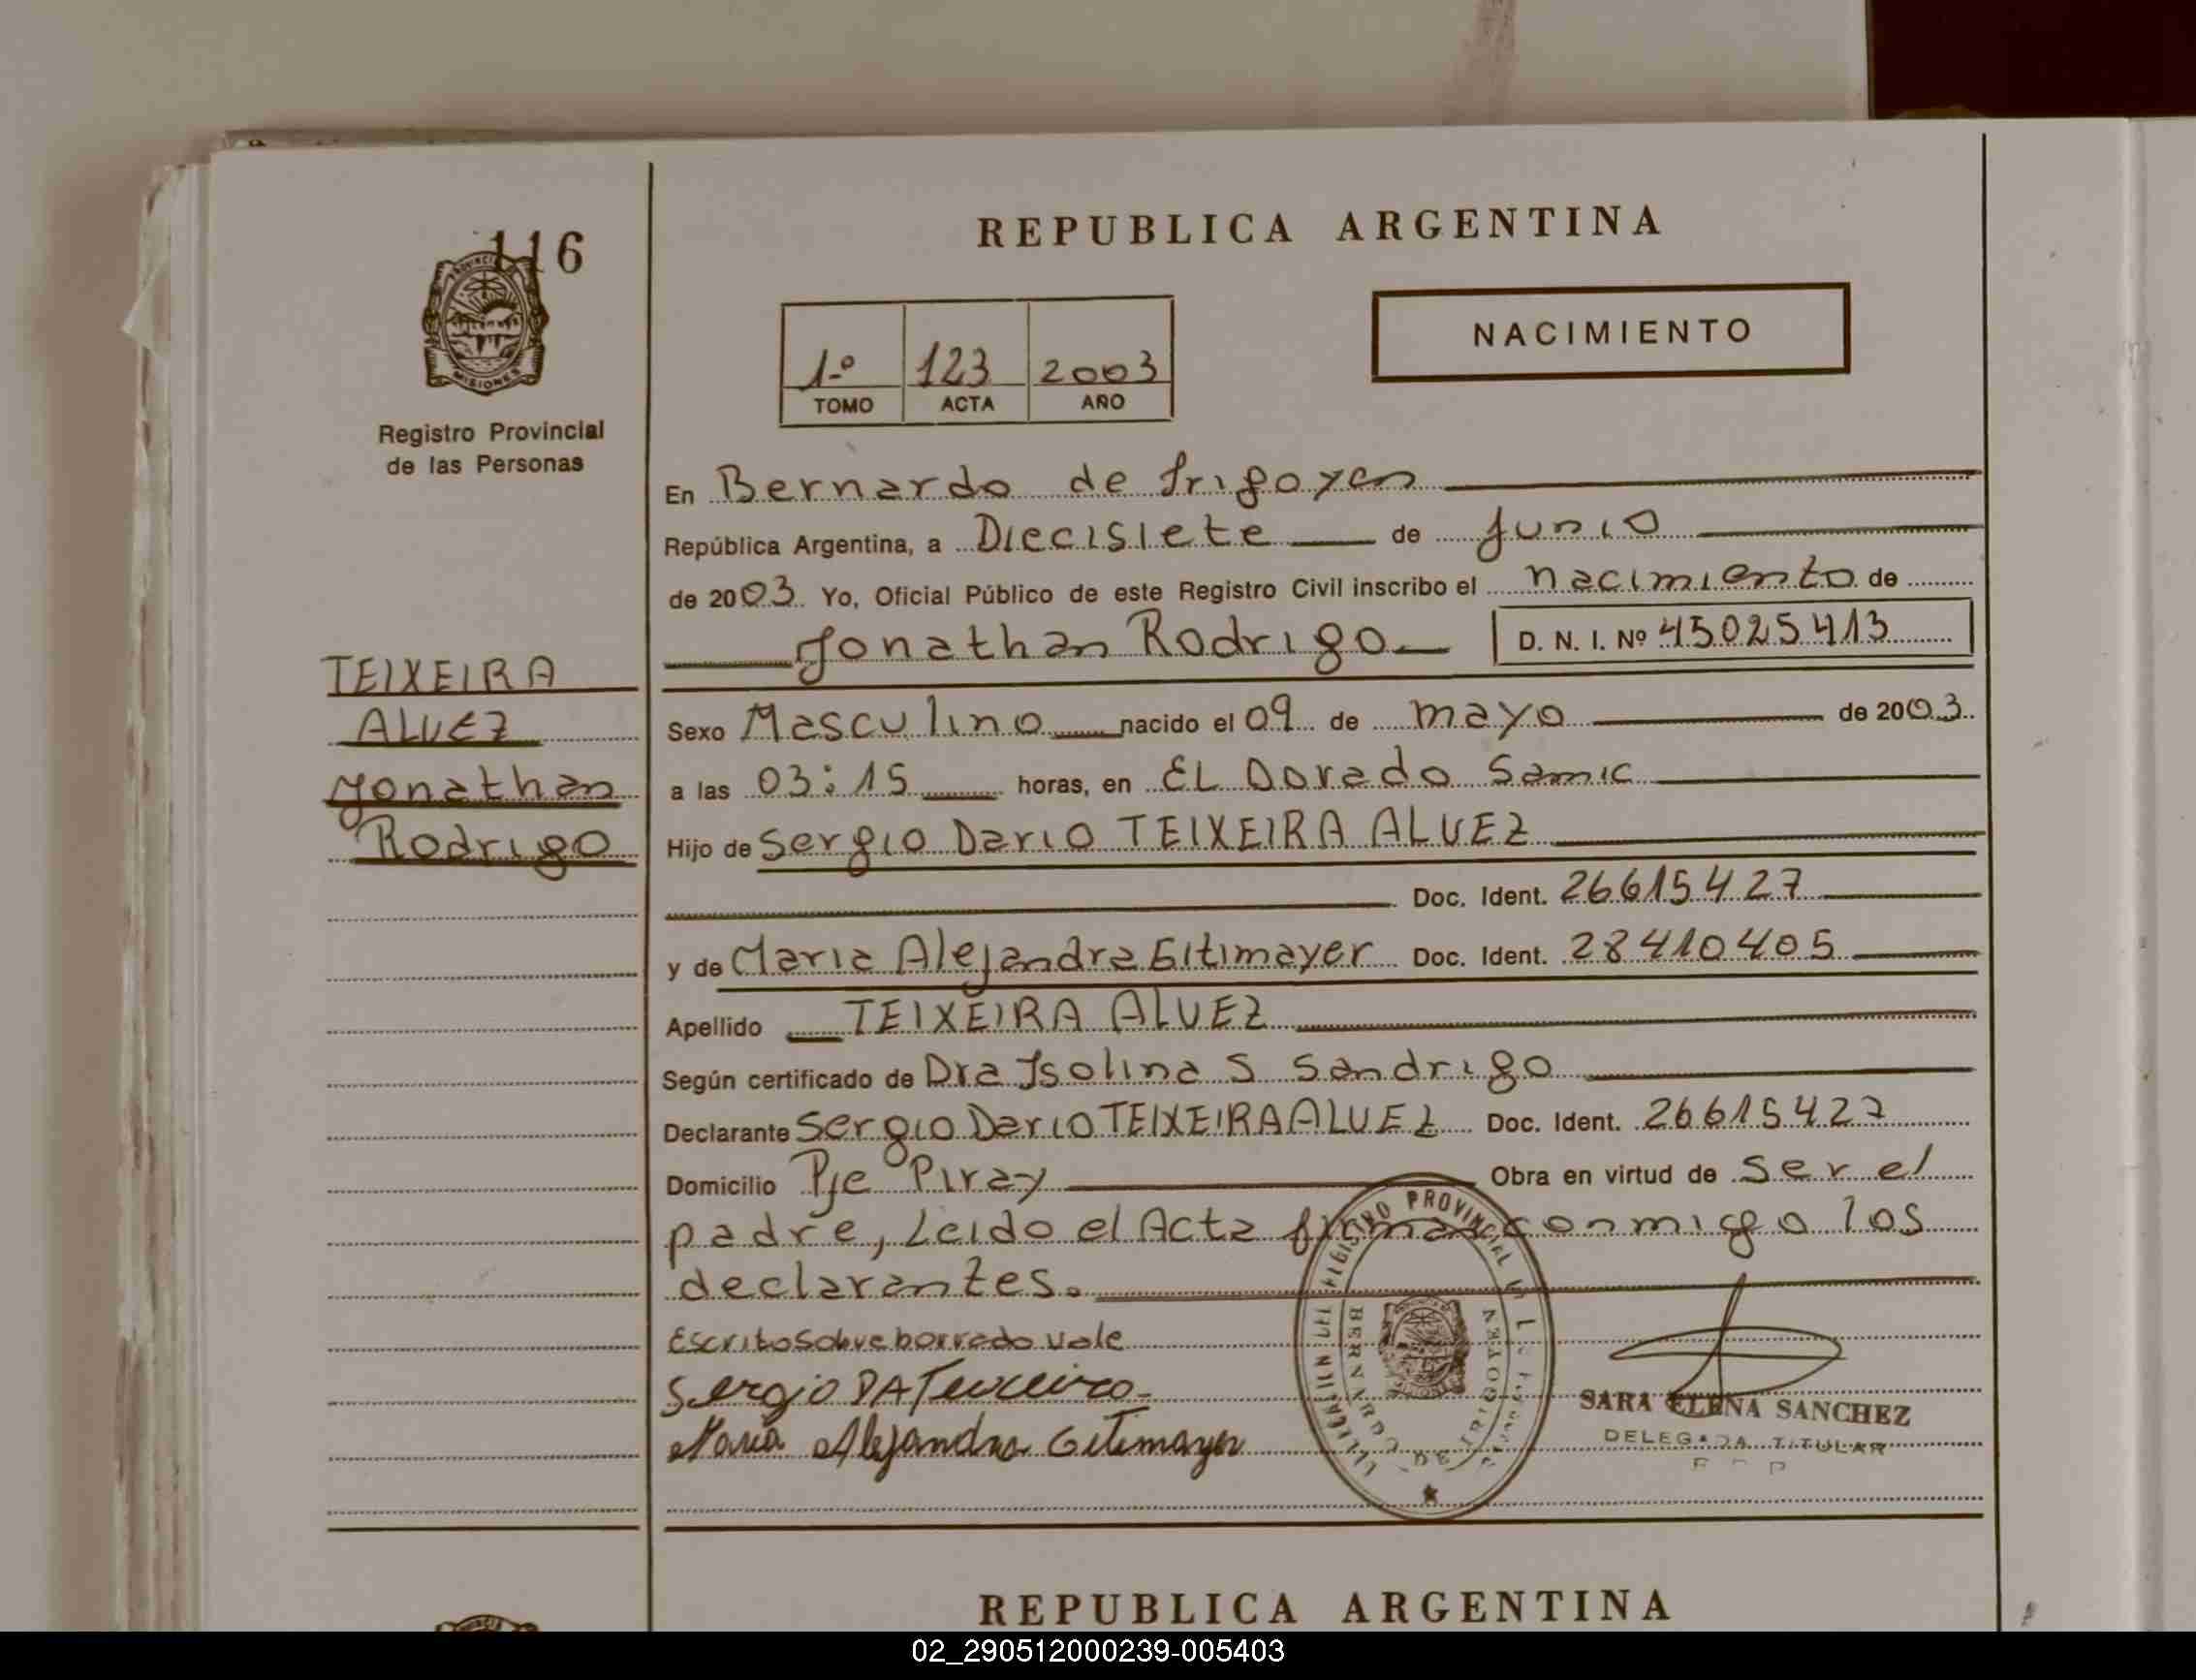 116
PROVINCIA
MISIONES
Registro Provincial
de las Personas
TEIXEIRA
ALVEZ
Jonathan
Rodrigo
REPUBLICA ARGENTINA
NACIMIENTO
1-º 123 2003
TOMO ACTA AÑO
En Bernardo de Irigoyen
República Argentina, a Diecisiete de Junio
de 2003. Yo, Oficial Público de este Registro Civil inscribo el nacimiento de
Jonathan Rodrigo D. N. I. Nº 45025413
Sexo Masculino nacido el 09 de mayo de 2003.
a las 03:15 horas, en EL Dorado Samic
Hijo de Sergio Dario TEIXEIRA ALVEZ
Doc. Ident. 26615427
y de Maria Alejandra Gitimayer Doc. Ident. 28410405
Apellido TEIXEIRA ALVEZ
Según certificado de Dra Isolina S Sandrigo
Declarante Sergio Dario TEIXEIRA ALVEZ Doc. Ident. 26615427
Domicilio Pje Piray Obra en virtud de ser el
padre, Leido el Acta firman conmigo los
declarantes.
Escrito sobre borrado vale
Sergio DA Teixeira
Maria Alejandra Gitimayer
REGISTRO PROVINCIAL
BERNARDO DE IRIGOYEN
SARA ELENA SANCHEZ
DELEGADA TITULAR
REPUBLICA ARGENTINA
02_290512000239-005403